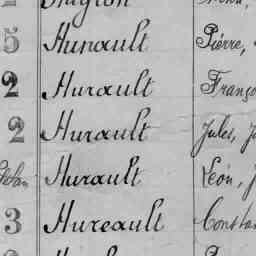 5 Hunault Pierre,
2 Hurault Franço
2 Hurault Jules, J
Hurault Léon, J
3 Hureault Consta